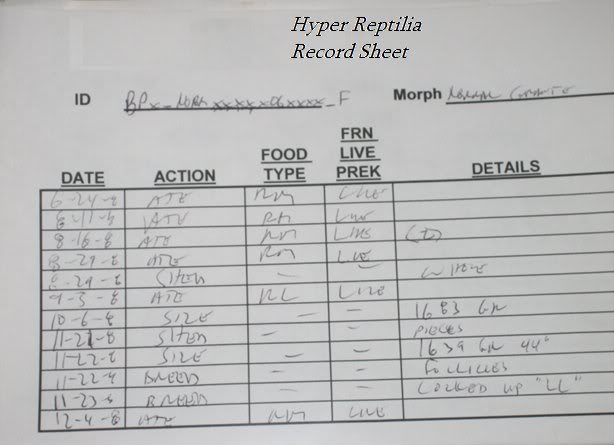 Hyper Reptilia
Record Sheet
ID BPx_NORM xxxxx06xxxx_F Morph NORMAL
FRN
FOOD LIVE
DATE ACTION TYPE PREK DETAILS
6-24-8 ATE RM LIVE
ATE RM LIVE
8-16-8 ATE RM LIVE
8-29-8 ATE RM LIVE
8-29-8 SHED — — WHOLE
9-3-8 ATE LIVE
10-6-8 SIZE — — 1683 GR
11-21-8 SHED — — PIECES
11-22-8 SIZE — — 1639 GR 44"
11-22-8 BREED — — FOLLICLES
11-23-8 BREED — — LOCKED UP "LL"
12-4-8 ATE RM LIVE